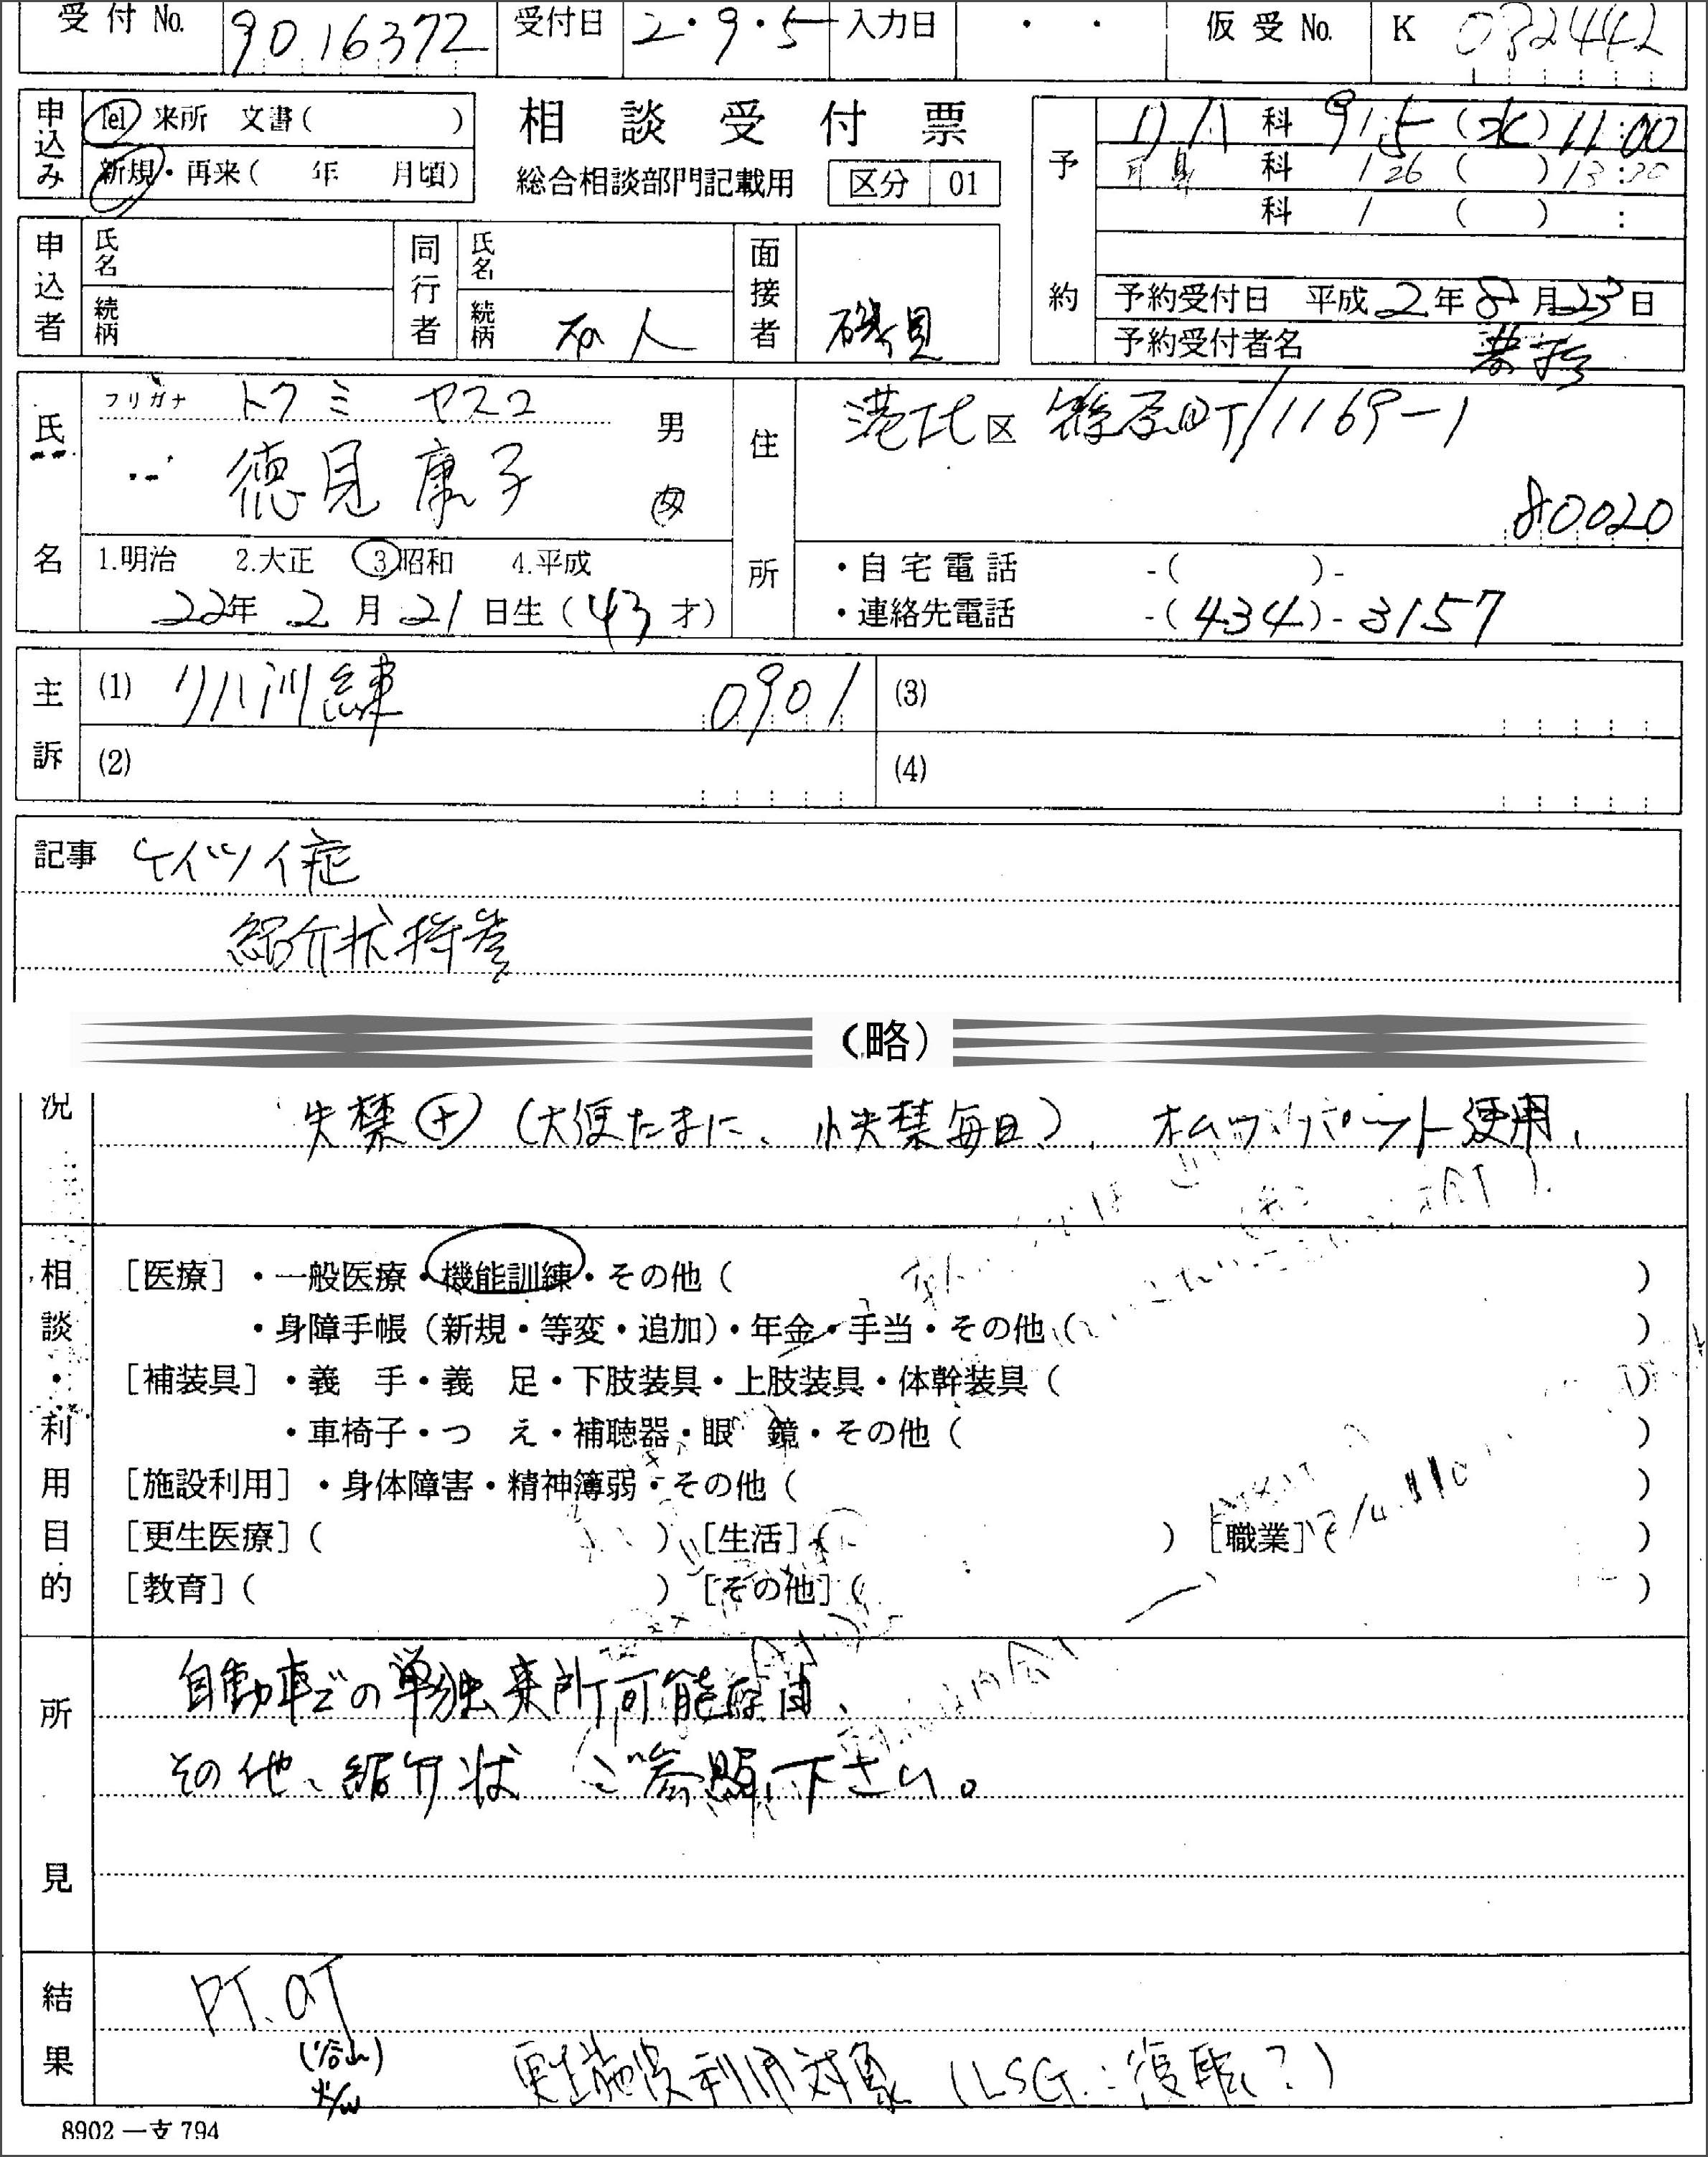 受付No. 9016372 受付日 2・9・5 入力日 ・ ・ 仮受No. K 082442
申込み Tel 来所 文書( )
新規・再来( 年 月頃)
相談受付票
総合相談部門記載用 区分 01
予約
リハ科 9/5(水)11:00
科 1/26( )13:30
科 / ( ) :
予約受付日 平成2年8月23日
予約受付者名
申込者 氏名
続柄
同行者 氏名
続柄 本人
面接者 磯貝
氏名 フリガナ トクミ ヤスコ
徳見康子 男 女
1.明治 2.大正 3.昭和 4.平成
22年2月21日生(43才)
住所 港北区 篠原町1169-1
80020
・自宅電話 -( )-
・連絡先電話 -(434)-3157
主訴 (1) リハ訓練 0901 (3)
(2) (4)
記事 ケイツイ症
紹介状持参
(略)
況 失禁(+)(大便たまに、小失禁毎日)、オムツ、パット使用、
相談・利用目的
[医療]・一般医療・機能訓練・その他( )
・身障手帳(新規・等変・追加)・年金・手当・その他( )
[補装具]・義 手・義 足・下肢装具・上肢装具・体幹装具( )
・車椅子・つ え・補聴器・眼 鏡・その他( )
[施設利用]・身体障害・精神簿弱・その他( )
[更生医療]( ) [生活]( ) [職業]( )
[教育]( ) [その他]( )
所見
自動車での単独来所可能
その他、紹介状 ご参照下さい。
結果
PT、OT
更生施設利用対象(LSG.:復職?)
8902-支794